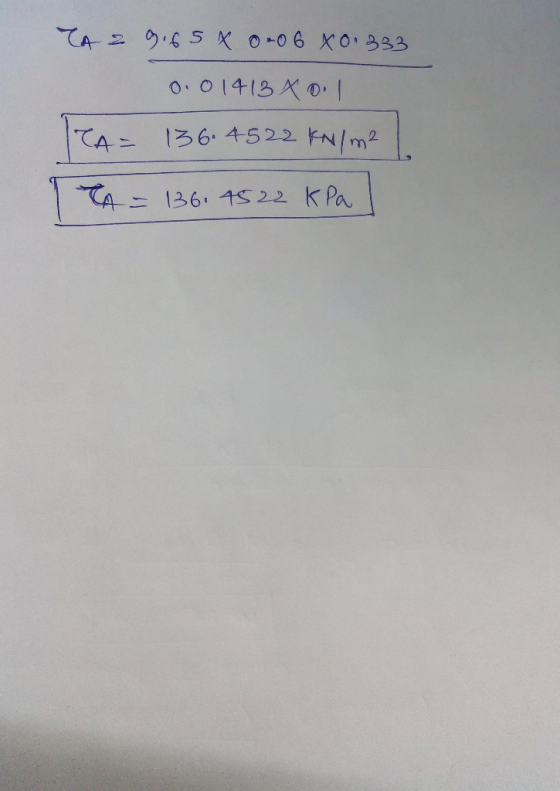 τA = 9.65 X 0.06 X 0.333
0.01413 X 0.1
τA = 136.4522 KN/m²
τA = 136.4522 KPa